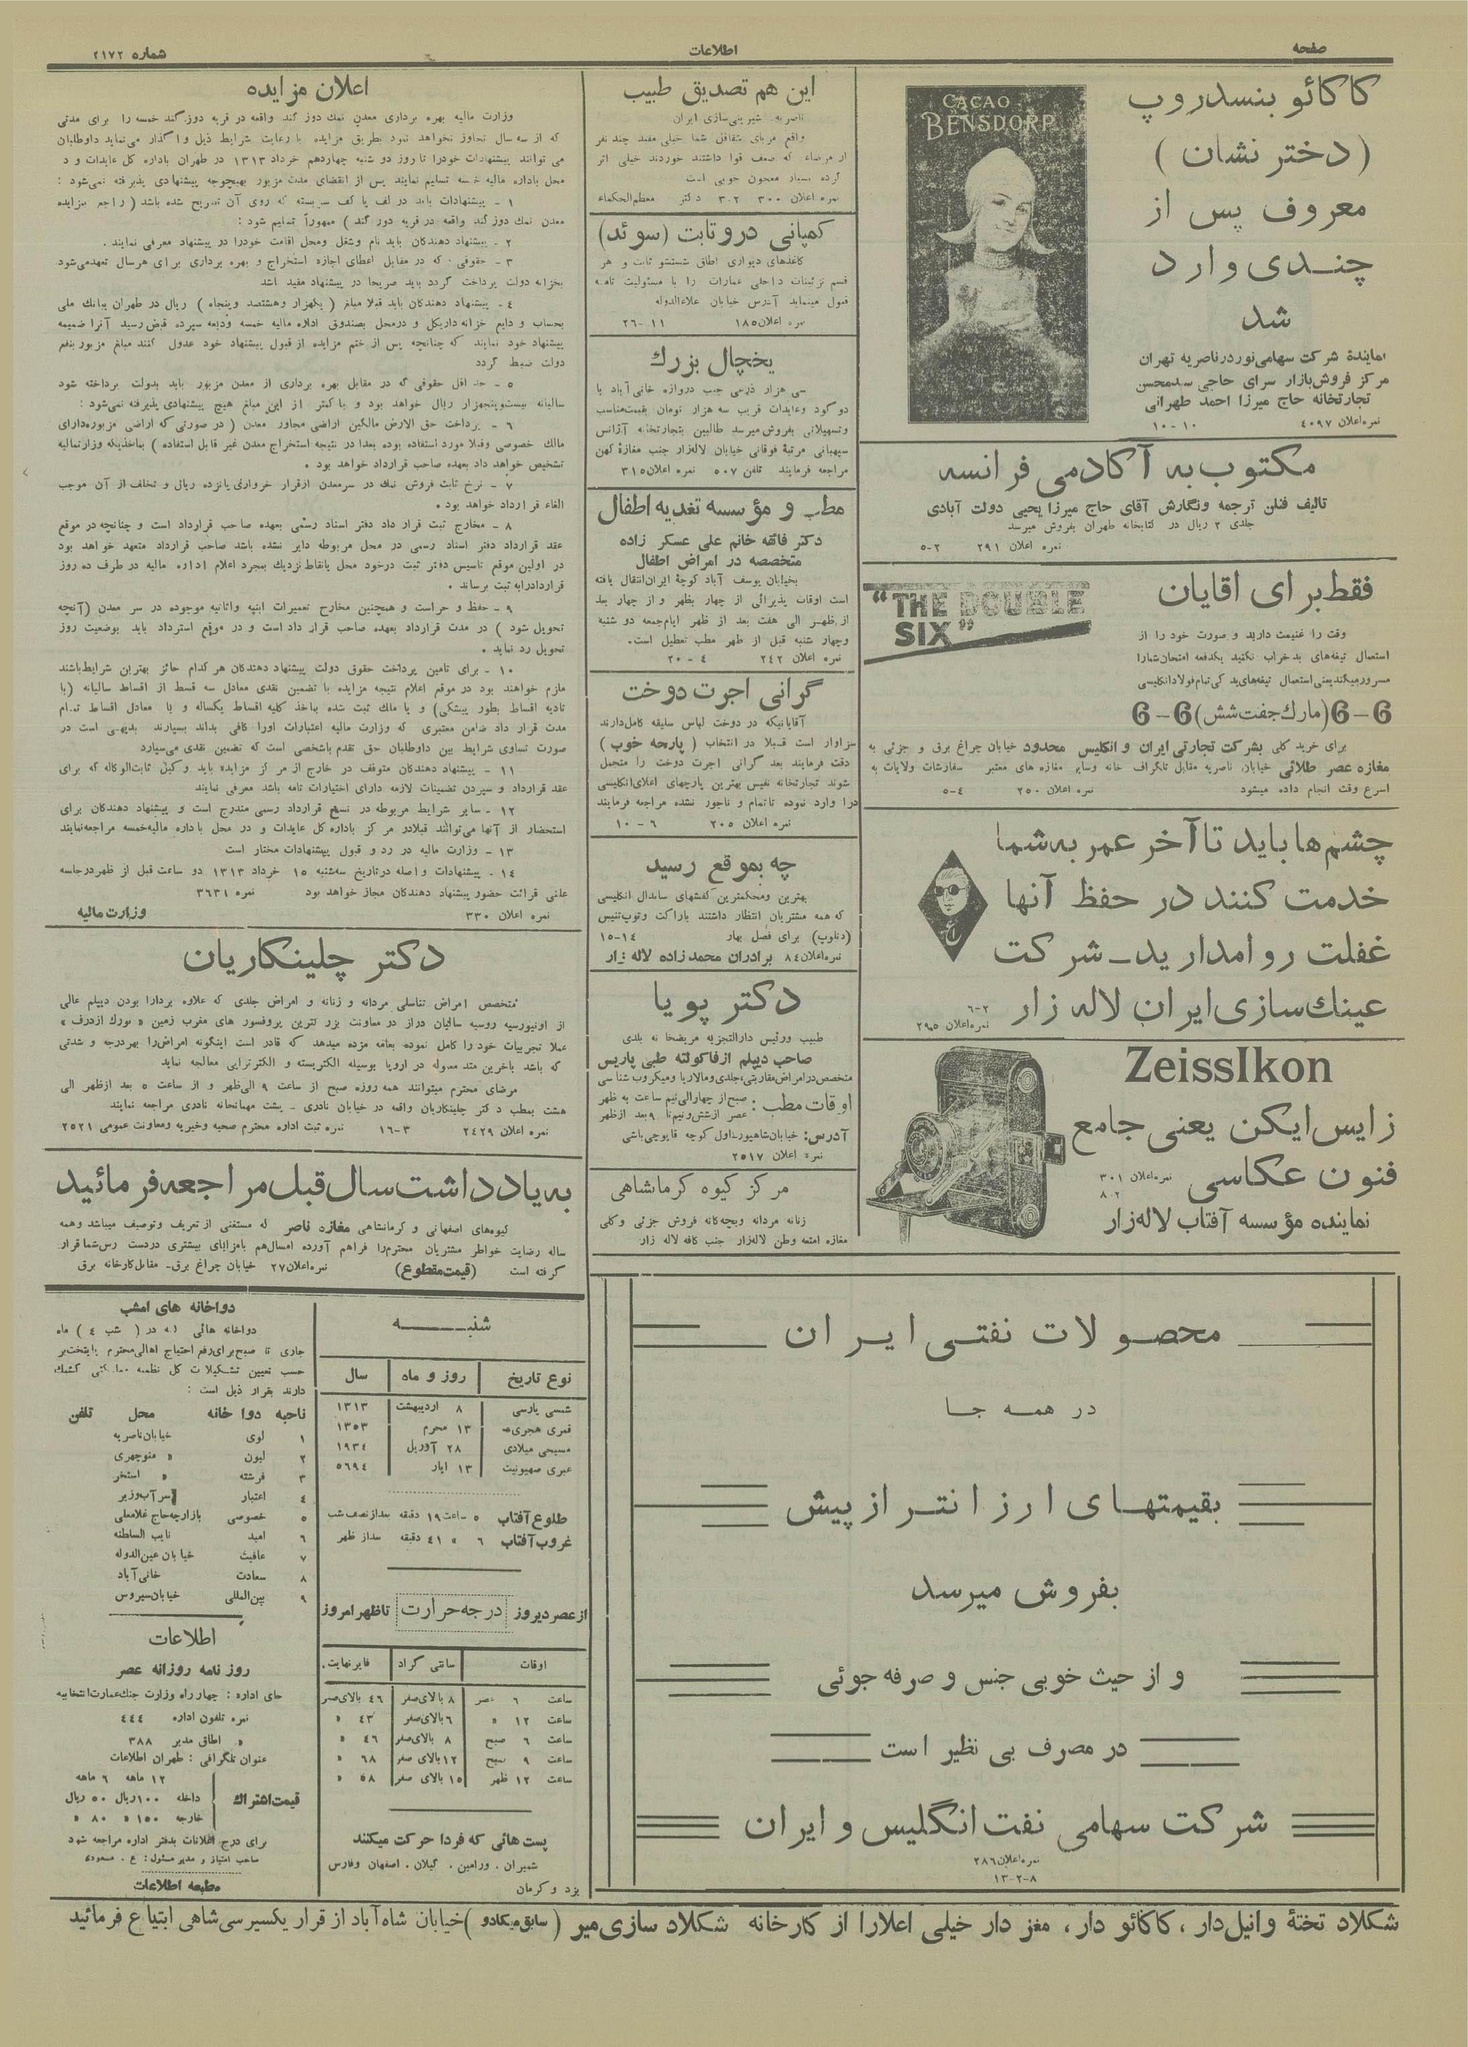 صفحه
اطلاعات
شماره ۲۱۷۲
کاکائو بنسدروپ
(دختر نشان)
معروف پس از
چندی وارد
شد
CACAO
BENSDORP
نمایندۀ شرکت سهامی نور در ناصریه تهران
مرکز فروش بازار سرای حاجی سید محسن
تجارتخانه حاج میرزا احمد طهرانی
نمره اعلان ۴۰۹۷ ۱۰-۱۰
مکتوب به آکادمی فرانسه
تالیف فنلن ترجمه ونگارش آقای حاج میرزا یحیی دولت آبادی
جلدی ۲ ریال در کتابخانه طهران بفروش میرسد
نمره اعلان ۲۹۱ ۵-۲
فقط برای اقایان
"THE DOUBLE
SIX"
وقت را غنیمت دارید و صورت خود را از
استعمال تیغه‌های بد خراب نکنید یکدفعه امتحان شمارا
مسرور میکند یعنی استعمال تیغه‌های یدکی تمام فولاد انگلیسی
6-6 (مارک جفت شش) 6-6
برای خرید کلی بشرکت تجارتی ایران و انگلیس محدود خیابان چراغ برق و جزئی به
مغازه عصر طلائی خیابان ناصریه مقابل تلگراف خانه وسایر مغازه های معتبر سفارشات ولایات به
اسرع وقت انجام داده میشود نمره اعلان ۲۵۰ ۵-۴
چشم‌ها باید تا آخر عمر به شما
خدمت کنند در حفظ آنها
غفلت روا مدارید ـ شرکت
عینک سازی ایران لاله زار
نمره اعلان ۲۹۵ ۶-۲
ZeissIkon
زایس ایکن یعنی جامع
فنون عکاسی
نمره اعلان ۳۰۱
۸-۲
نماینده مؤسسه آفتاب لاله‌زار
این هم تصدیق طبیب
ناصریه شیرینی سازی ایران
واقع مربای شقاقل شما خیلی مفید چند نفر
از مرضاء که ضعف قوا داشتند خوردند خیلی اثر
کرده بسیار معجون خوبی است
نمره اعلان ۳۰۰ ۳-۲ دکتر معظم‌الحکماء
کمپانی دروتابت (سوئد)
کاغذهای دیواری اطاق شستشو ثابت و هر
قسم تزئینات داخلی عمارات را با مسئولیت تامه
قبول مینماید آدرس خیابان علاءالدوله
نمره اعلان ۱۸۵ ۲۶-۱۱
یخچال بزرگ
سی هزار ذرعی جنب دروازه خانی آباد با
دو گود وعایدات قریب سه هزار تومان بقیمت مناسب
وتسهیلاتی بفروش میرسد طالبین بتجارتخانه آژانس
سپهبانی مرتبۀ فوقانی خیابان لاله‌زار جنب مغازۀ کهن
مراجعه فرمایند تلفن ۵۰۷ نمره اعلان ۳۱۵
مطب و مؤسسه تغذیه اطفال
دکتر فائقه خانم علی عسکر زاده
متخصصه در امراض اطفال
بخیابان یوسف آباد کوچۀ ایران انتقال یافته
است اوقات پذیرائی از چهار بظهر و از چهار بعد
از ظهر الی هفت بعد از ظهر ایام جمعه دو شنبه
وچهار شنبه قبل از ظهر مطب تعطیل است.
نمره اعلان ۲۴۲ ۲۰-۴
گرانی اجرت دوخت
آقایانیکه در دوخت لباس سلیقه کامل دارند
سزاوار است قبلا در انتخاب (پارچه خوب)
دقت فرمایند بعد گرانی اجرت دوخت را متحمل
شوند تجارتخانه نفیس بهترین پارچهای اعلای انگلیسی
درا وارد نموده تا تمام و ناجور نشده مراجعه فرمایند
نمره اعلان ۲۰۵ ۱۰-۶
چه بموقع رسید
بهترین ومحکمترین کفشهای ساندال انگلیسی
که همه مشتریان انتظار داشتند با راکت وتوپ تنیس
(دنلوپ) برای فصل بهار ۱۵-۱۴
نمره اعلان ۸۴ برادران محمدزاده لاله زار
دکتر پویا
طبیب ورئیس دارالتجزیه مریضخانه بلدی
صاحب دیپلم از فاکولته طبی پاریس
متخصص در امراض مقاربتی، جلدی ومالاریا ومیکروب شناسی
اوقات مطب: صبح از چهار الی نیم ساعت به ظهر
عصر از شش ونیم تا ۹ بعد از ظهر
آدرس: خیابان شاهپور اول کوچه قاپوچی باشی
نمره اعلان ۲۵۱۷
مرکز گیوه کرمانشاهی
زنانه مردانه وبچه گانه فروش جزئی وکلی
مغازه امتعه وطن لاله‌زار جنب کافه لاله زار
اعلان مزایده
وزارت مالیه بهره برداری معدن نمک دوز کند واقعه در قریه دوزگند خمسه را برای مدتی
که از سه سال تجاوز نخواهد نمود بطریق مزایده با رعایت شرایط ذیل واگذار می‌نماید داوطلبان
می توانند پیشنهادات خود را تا روز دو شنبه چهاردهم خرداد ۱۳۱۳ در طهران باداره کل عایدات و در
محل باداره مالیه خمسه تسلیم نمایند پس از انقضای مدت مزبور بهیچوجه پیشنهادی پذیرفته نمی‌شود:
۱ - پیشنهادات باید در لف پاکت سربسته که روی آن تصریح شده باشد (راجع بمزایده
معدن نمک دوز گند واقعه در قریه دوز گند) ممهوراً تسلیم شود:
۲ - پیشنهاد دهندگان باید نام وشغل ومحل اقامت خود را در پیشنهاد معرفی نمایند.
۳ - حقوقی که در مقابل اعطای اجازه استخراج و بهره برداری برای هر سال تعهد می‌شود
بخزانه دولت پرداخت گردد باید صریحا در پیشنهاد مقید باشد
۴ - پیشنهاد دهندگان باید قبلا مبلغ (یکهزار وهشتصد وپنجاه) ریال در طهران ببانک ملی
بحساب و دایم خزانه داریکل و در محل بصندوق اداره مالیه خمسه ودیعه سپرده قبض رسید آنرا ضمیمه
پیشنهاد خود نمایند که چنانچه پس از ختم مزایده از قبول پیشنهاد خود عدول کنند مبلغ مزبور بنفع
دولت ضبط گردد
۵ - حد اقل حقوقی که در مقابل بهره برداری از معدن مزبور باید بدولت پرداخته شود
سالیانه بیست وپنجهزار ریال خواهد بود و با کمتر از این مبلغ هیچ پیشنهادی پذیرفته نمی‌شود:
۶ - پرداخت حق الارض مالکین اراضی مجاور معدن (در صورتی که اراضی مزبوره دارای
مالک خصوصی وقبلا مورد استفاده بوده بعدا در نتیجه استخراج معدن غیر قابل استفاده) بماخذیکه وزارتمالیه
تشخیص خواهد داد بعهده صاحب قرارداد خواهد بود.
۷ - نرخ ثابت فروش نمک در سر معدن از قرار خرواری پانزده ریال و تخلف از آن موجب
الغاء قرارداد خواهد بود.
۸ - مخارج ثبت قرار داد دفتر اسناد رسمی بعهده صاحب قرارداد است و چنانچه در موقع
عقد قرارداد دفتر اسناد رسمی در محل مربوطه دایر نشده باشد صاحب قرارداد متعهد خواهد بود
در اولین موقع تاسیس دفتر ثبت در خود محل یا نقاط نزدیک بمجرد اعلام اداره مالیه در ظرف ده روز
قرارداد را به ثبت برساند.
۹ - حفظ و حراست و همچنین مخارج تعمیرات ابنیه واثاثیه موجوده در سر معدن (آنچه
تحویل شود) در مدت قرارداد بعهده صاحب قرار داد است و در موقع استرداد باید بوضعیت روز
تحویل رد نماید.
۱۰ - برای تامین پرداخت حقوق دولت پیشنهاد دهندگان هر کدام حائز بهترین شرایط باشند
ملزم خواهند بود در موقع اعلام نتیجه مزایده یا تضمین نقدی معادل سه قسط از اقساط سالیانه (با
تادیه اقساط بطور پیشکی) و یا ملک ثبت شده بماخذ کلیه اقساط یکساله و یا معادل اقساط تمام
مدت قرار داد ضامن معتبری که وزارت مالیه اعتبارات اورا کافی بداند بسپارند بدیهی است در
صورت تساوی شرایط بین داوطلبان حق تقدم باشخصی است که تضمین نقدی می‌سپارد
۱۱ - پیشنهاد دهندگان متوقف در خارج از مرکز مزایده باید وکیل ثابت‌الوکاله که برای
عقد قرارداد و سپردن تضمینات لازمه دارای اختیارات تامه باشد معرفی نمایند
۱۲ - سایر شرایط مربوطه در نسخ قرارداد رسمی مندرج است و پیشنهاد دهندگان برای
استحضار از آنها می‌توانند قبلا در مرکز باداره کل عایدات و در محل باداره مالیه خمسه مراجعه نمایند
۱۳ - وزارت مالیه در رد و قبول پیشنهادات مختار است
۱۴ - پیشنهادات واصله در تاریخ سه‌شنبه ۱۵ خرداد ۱۳۱۳ دو ساعت قبل از ظهر در جلسه
علنی قرائت حضور پیشنهاد دهندگان مجاز خواهد بود نمره ۳۶۳۱
نمره اعلان ۳۳۰ وزارت مالیه
دکتر چلینکاریان
متخصص امراض تناسلی مردانه و زنانه و امراض جلدی که علاوه بر دارا بودن دیپلم عالی
از اونیورسیه روسیه سالیان دراز در معاونت بزرگترین پروفسور های مغرب زمین
عملا تجربیات خود را کامل نموده بعامه مژده میدهد که قادر است اینگونه امراض را بهر درجه و شدتی
که باشد باخرین متد معموله در اروپا بوسیله الکتریسته و الکترتراپی معالجه نماید
مرضای محترم میتوانند همه روزه صبح از ساعت ۹ الی ظهر و از ساعت ۵ بعد از ظهر الی
هشت بمطب دکتر چلینکاریان واقعه در خیابان نادری ـ پشت مهمانخانه نادری مراجعه نمایند
نمره اعلان ۲۴۲۹ ۱۶-۳ نمره ثبت اداره محترم صحیه وخیریه ومعاونت عمومی ۲۵۲۱
به یادداشت سال قبل مراجعه فرمائید
گیوه‌های اصفهانی و کرمانشاهی مغازه ناصر که مستغنی از تعریف وتوصیف میباشد وهمه
ساله رضایت خواطر مشتریان محترم را فراهم آورده امسال هم با مزایای بیشتری در دست رس شما قرار
گرفته است (قیمت مقطوع) نمره اعلان ۲۷ خیابان چراغ برق ـ مقابل کارخانه برق
شنبه
نوع تاریخ روز و ماه سال
شمسی پارسی ۸ اردیبهشت ۱۳۱۳
قمری هجری ۱۳ محرم ۱۳۵۳
مسیحی میلادی ۲۸ آوریل ۱۹۳۴
عبری صهیونیت ۱۳ ایار ۵۶۹۴
طلوع آفتاب ۵ ساعت ۱۹ دقیقه بعد از نصف شب
غروب آفتاب ۶ » ۴۱ دقیقه بعد از ظهر
از عصر دیروز درجه حرارت تا ظهر امروز
اوقات سانتی گراد فارنهایت.
ساعت ۶ عصر ۸ بالای صفر ۴۶ بالای صفر
ساعت ۱۲ » ۶ بالای صفر ۴۳ »
ساعت ۶ صبح ۸ بالای صفر ۴۶ »
ساعت ۹ صبح ۱۲ بالای صفر ۶۸ »
ساعت ۱۲ ظهر ۱۵ بالای صفر ۵۸ »
پست هائی که فردا حرکت میکنند
شمیران. ورامین. گیلان. اصفهان وفارس
یزد وکرمان
دواخانه های امشب
دواخانه هائی که در (شب ۴) ماه
جاری تا صبح برای رفع احتیاج اهالی محترم پایتخت بر
حسب تعیین تشکیلات کل نظمیه کشیک
دارند بقرار ذیل است:
ناحیه دواخانه محل تلفن
۱ لوی خیابان ناصریه
۲ لیون » منوچهری
۳ فرشته » استخر
۴ اعتبار سر آب وزیر
۵ خصوصی بازارچه حاج غلامعلی
۶ امید نایب السلطنه
۷ عافیت خیابان عین‌الدوله
۸ سعادت خانی آباد
۹ بین‌المللی خیابان سیروس
اطلاعات
روزنامه روزانه عصر
جای اداره: چهار راه وزارت جنگ عمارت انتخابیه
نمره تلفون اداره ۴۴۴
» اطاق مدیر ۳۸۸
عنوان تلگرافی: طهران اطلاعات
۱۲ ماهه ۶ ماهه
قیمت اشتراک داخله ۱۰۰ ریال ۵۰ ریال
خارجه ۱۵۰ » ۸۰ »
برای درج اعلانات بدفتر اداره مراجعه شود
صاحب امتیاز و مدیر مسئول: ع. مسعودی
مطبعه اطلاعات
محصولات نفتی ایران
در همه جا
بقیمتهای ارزانتر از پیش
بفروش میرسد
و از حیث خوبی جنس و صرفه جوئی
در مصرف بی نظیر است
شرکت سهامی نفت انگلیس و ایران
نمره اعلان ۲۸۶
۱۳-۲-۸
شکلاد تختۀ وانیل‌دار، کاکائو دار، مغز دار خیلی اعلارا از کارخانه شکلاد سازی میر (سابق میکادو) خیابان شاه آباد از قرار یکسیر سی شاهی ابتیاع فرمائید